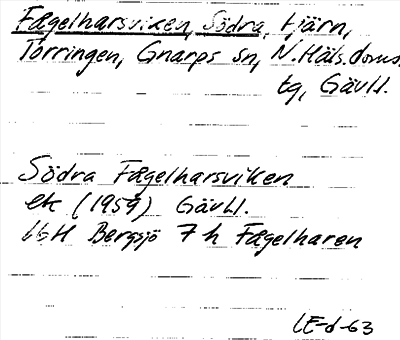 Fægelharsviken, Södra, tjärn,
Torringen, Gnarps sn, N. Häls. doms.
tg, Gävl l.
Södra Fægelharsviken
ek (1959) Gävl l.
16H Bergsjö 7 h Fægelharen
LE-d-63